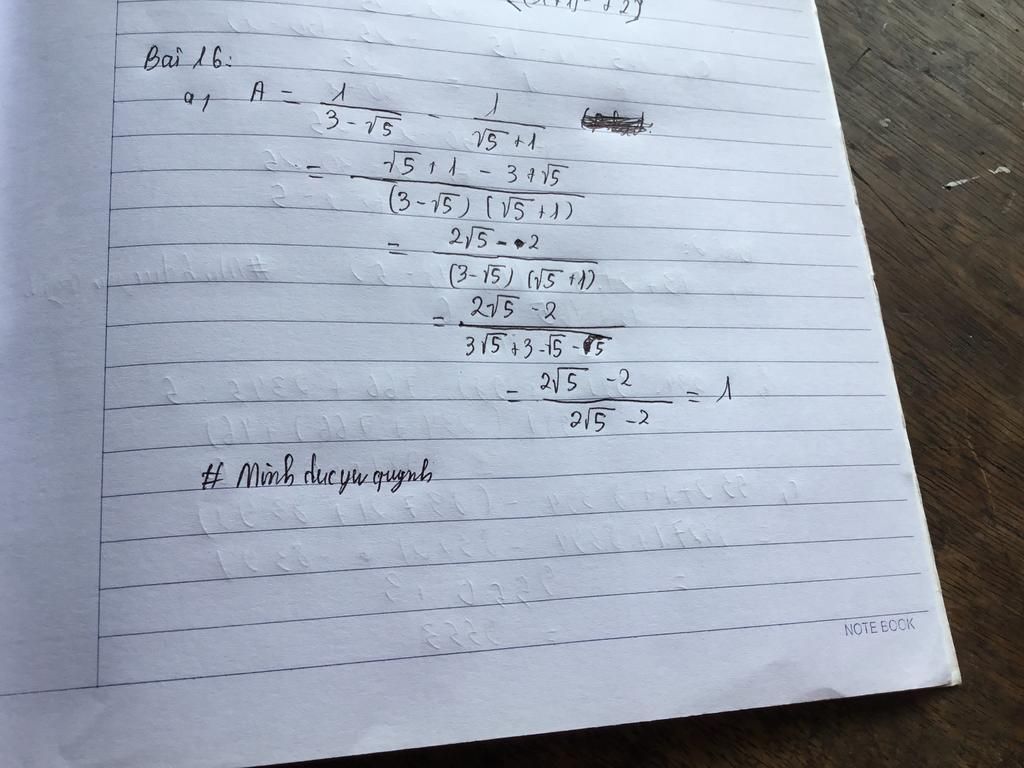 Bài 16:
a, A = 1/(3 - √5) - 1/(√5 + 1)
= (√5 + 1 - 3 + √5)/((3 - √5) (√5 + 1))
= (2√5 - 2)/((3 - √5) (√5 + 1))
= (2√5 - 2)/(3√5 + 3 - √5 - 5)
= (2√5 - 2)/(2√5 - 2) = 1
# Minh duc yu quynh
NOTE BOOK